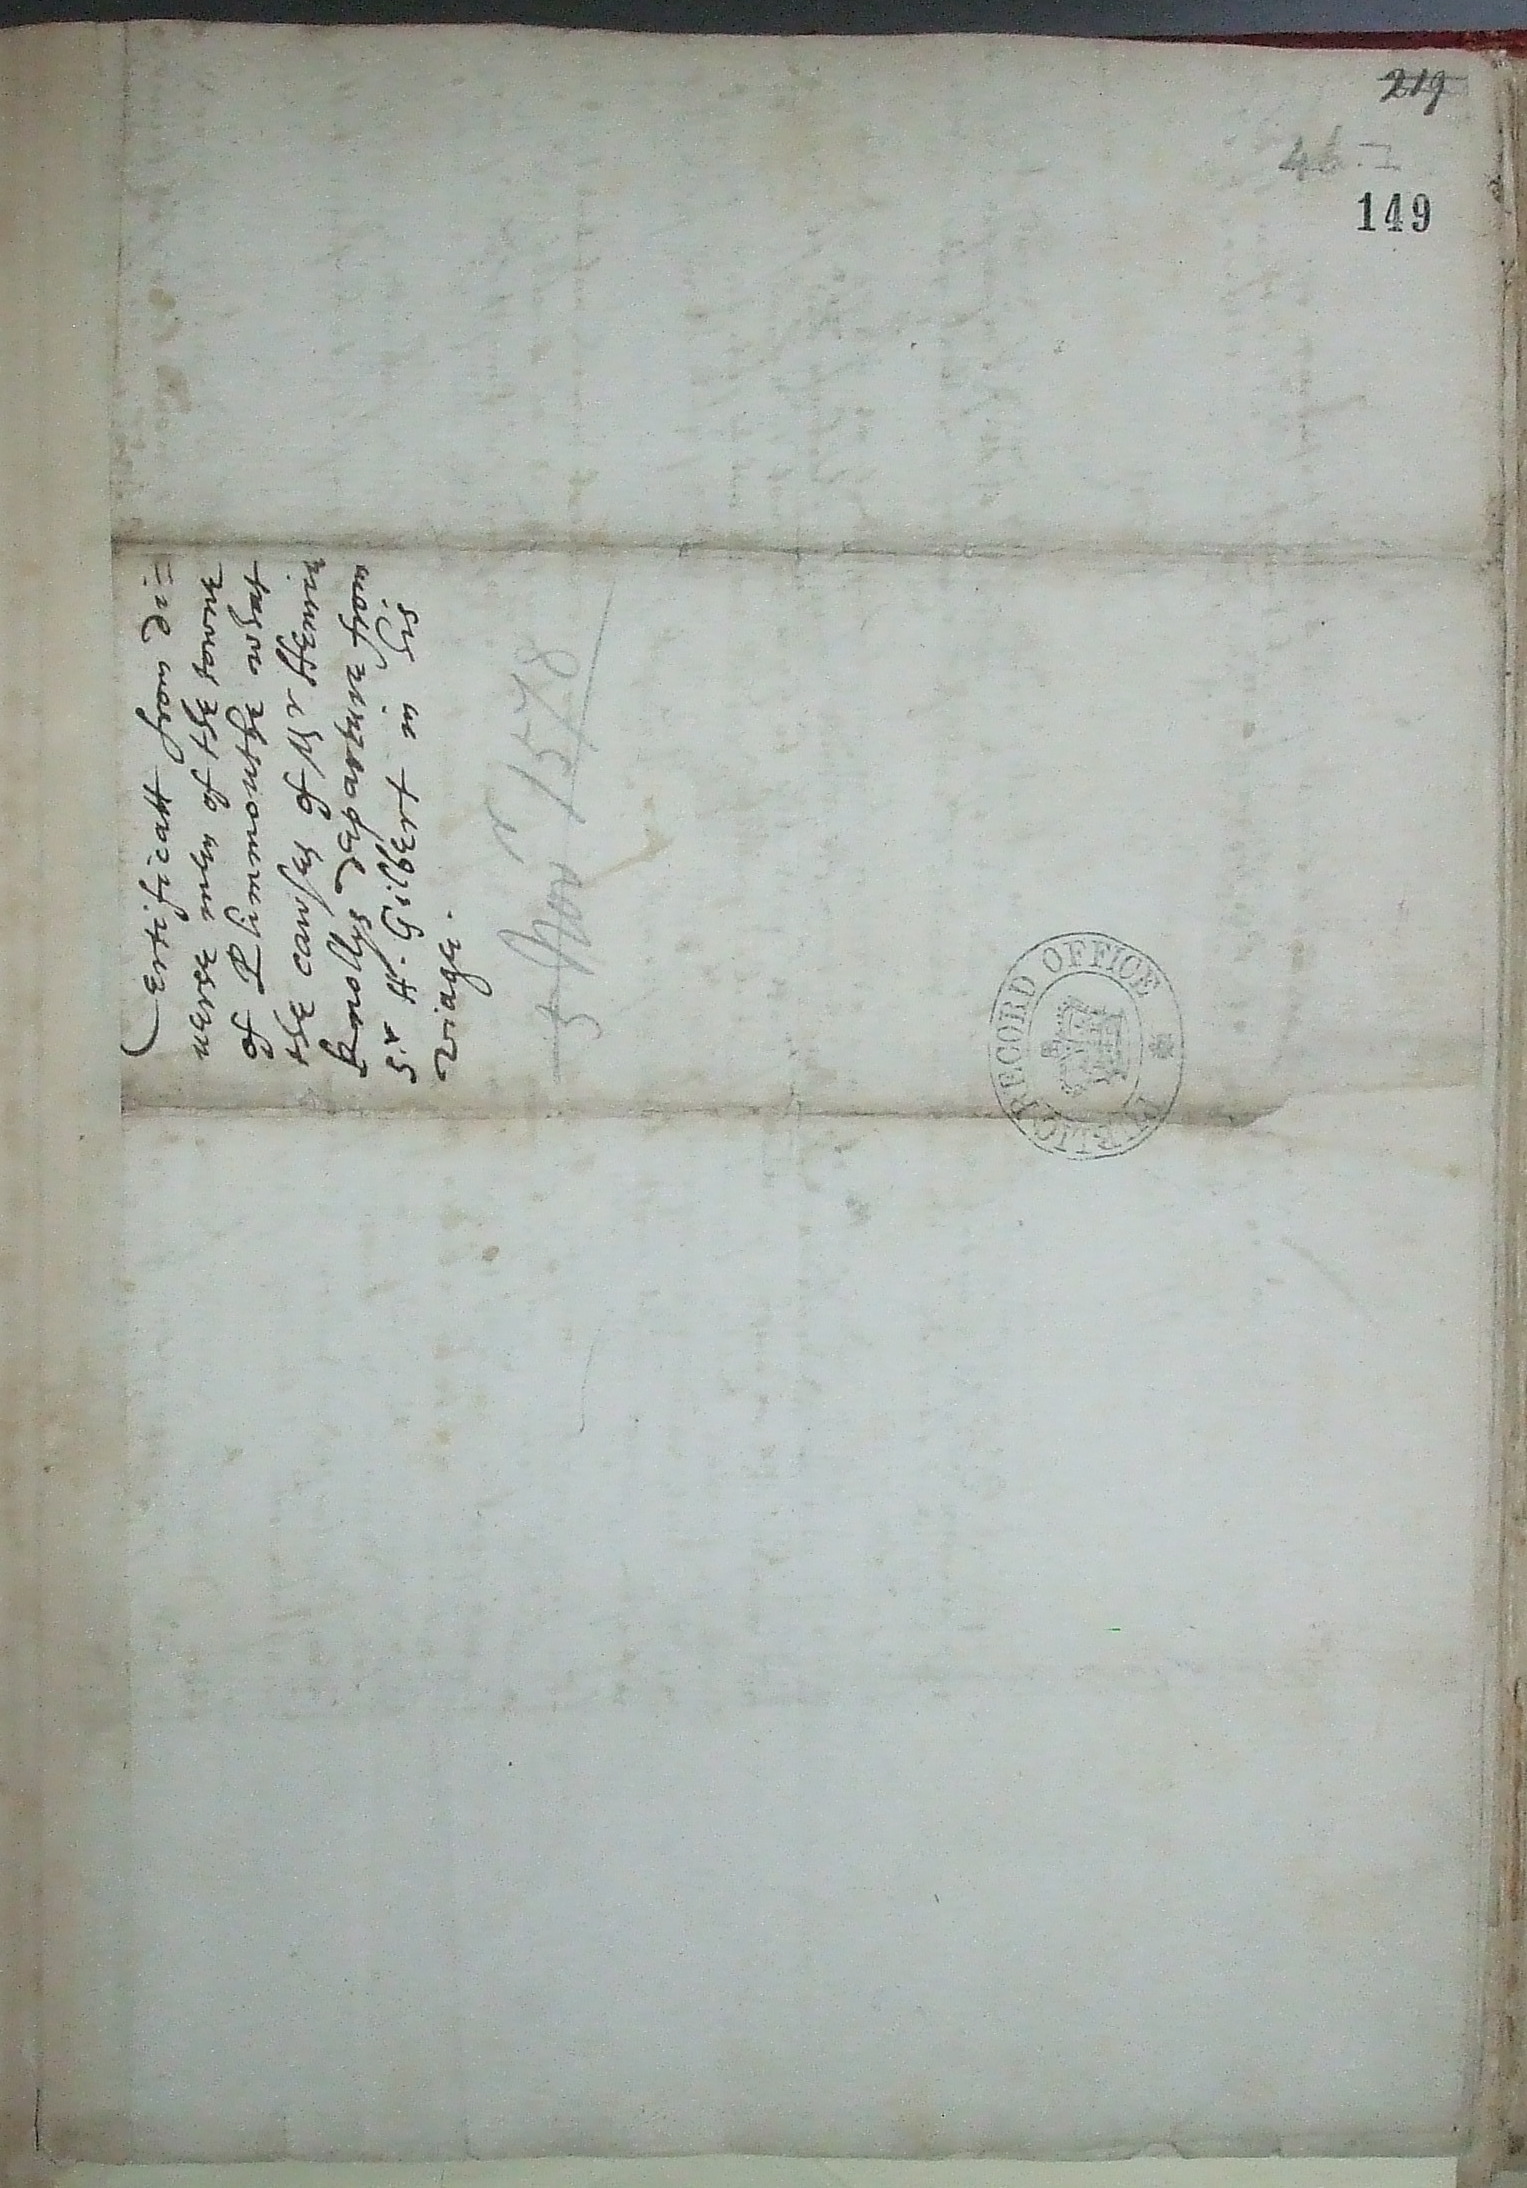 219
46. I
149
Certificatt from di=
uerse men of the towne
of Plimmouthe what
the causes of Mr Henrie
Knowlls departure from
Sir H. Gilbert in his
viage.
5 Nov r 1578
PUBLIC RECORD OFFICE